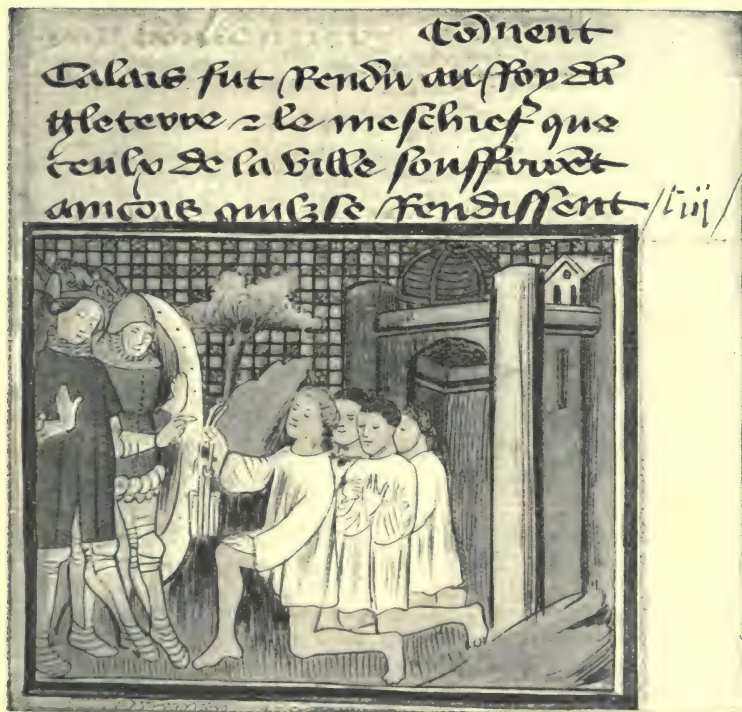 Coment
Calais fut Rendu au Roy dā
gleterre ⁊ le meschief que
ceulx de la Ville souffrirēt
ancois quilz se Rendissent /Ciij/